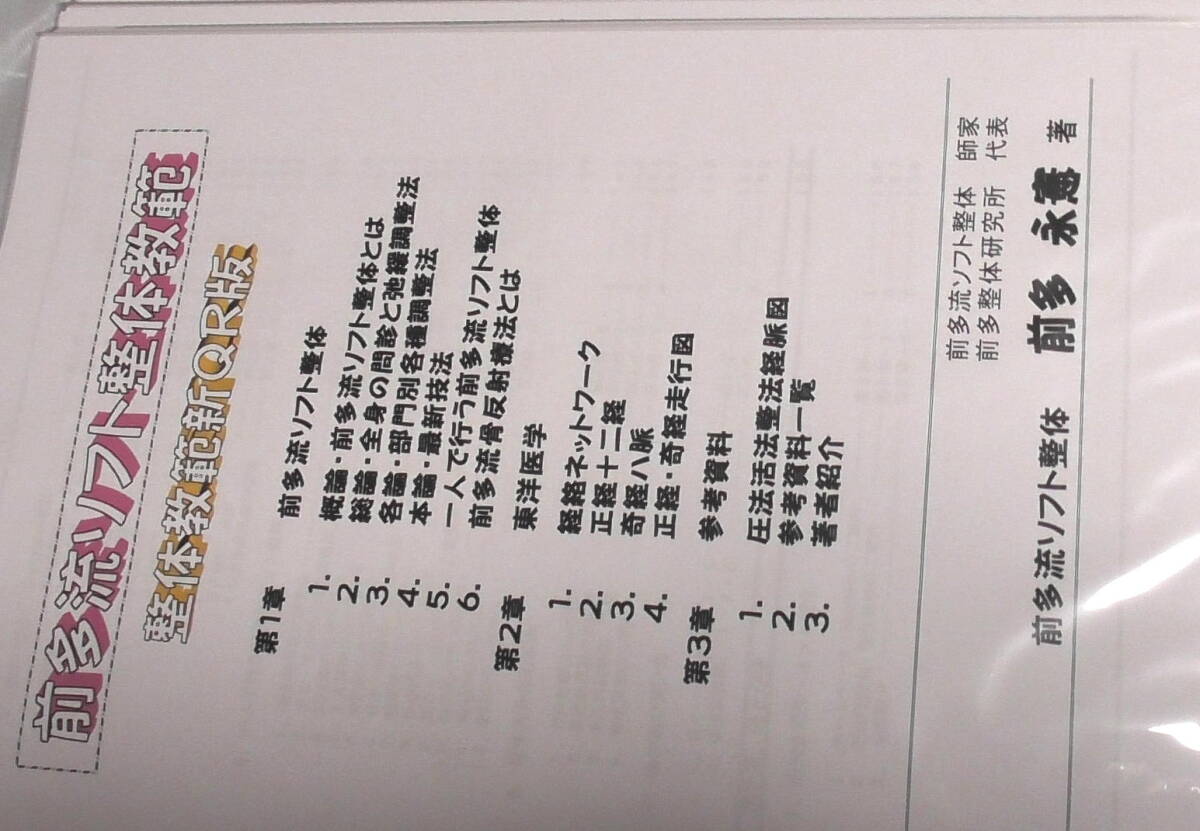 前多流ソフト整体教範
整体教範新QR版
第1章 前多流ソフト整体
1. 概論・前多流ソフト整体とは
2. 総論・全身の問診と弛緩調整法
3. 各論・部門別各種調整法
4. 本論・最新技法
5. 一人で行う前多流ソフト整体
6. 前多流骨反射療法とは
第2章 東洋医学
1. 経絡ネットワーク
2. 正経十二経
3. 奇経八脈
4. 正経・奇経走行図
第3章 参考資料
1. 圧法活法整法経脈図
2. 参考資料一覧
3. 著者紹介
前多流ソフト整体 師家
前多整体研究所 代表
前多流ソフト整体 前多 永憲 著